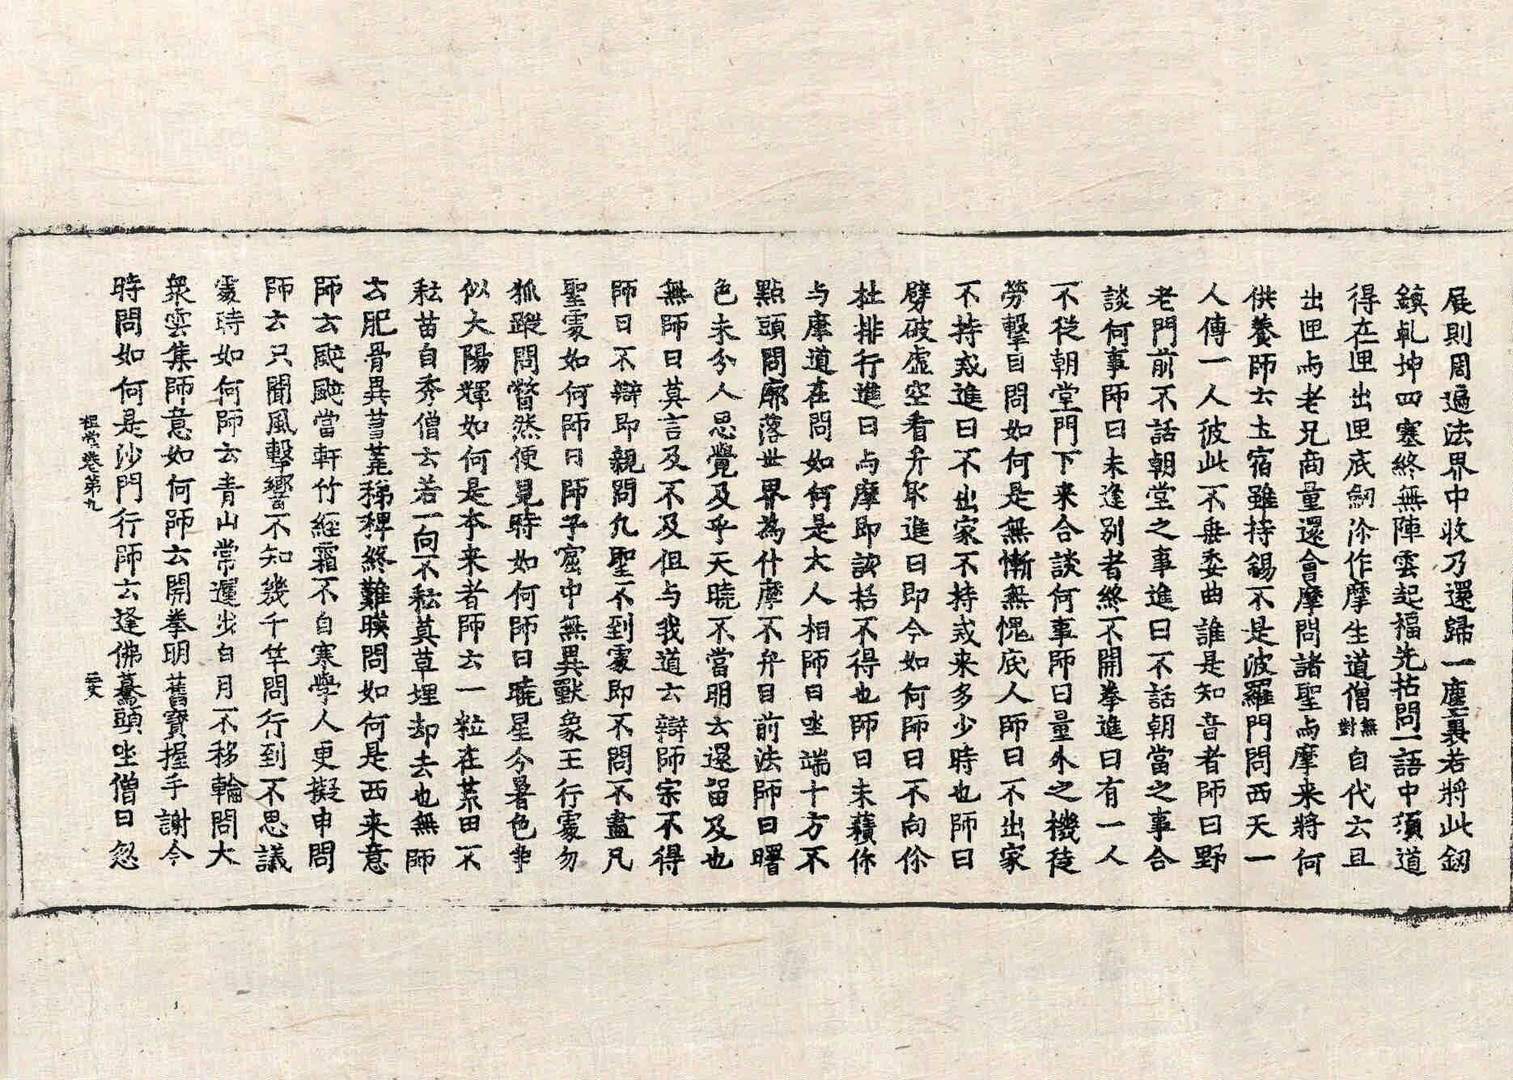 展則周遍法界中收乃還歸一塵裏若將此釰
鎮乹坤四塞終無陣雲起福先拈問語中須道
得在匣出匣底釰你作摩生道僧無對自代云且
出匣与老兄商量還會摩問諸聖与摩来將何
供養師云土宿雖持錫不是波羅門問西天一
人傳一人彼此不垂委曲誰是知音者師曰野
老門前不話朝堂之事進曰不話朝當之事合
談何事師曰未逢別者終不開拳進曰有一人
不從朝堂門下来合談何事師曰量外之機徒
勞擊目問如何是無慚無愧底人師曰不出家
不持戒進曰不出家不持戒来多少時也師曰
劈破虛空看弁取進曰即今如何師曰不向你
社排行進曰与摩即該括不得也師曰未積你
与摩道在問如何是大人相師曰坐端十方不
點頭問廓落世界為什摩不弁目前法師曰曙
色未分人思覺及乎天曉不當明云還留及也
無師曰莫言及不及但与我道云辯師宗不得
師曰不辯即親問凢聖不到處即不問不盡凡
聖處如何師曰師子窟中無異獸象王行處勿
狐蹤問瞥然便見時如何師曰曉星今暑色爭
似大陽輝如何是本来者師云一粒在荒田不
耘苗自秀僧云若一向不耘莫草埋却去也無師
云肥骨異蒭蕘稊稗終難暎問如何是西来意
師云颼颼當軒竹經霜不自寒學人更擬申問
師云只聞風擊響不知幾千竿問行到不思議
處時如何師云青山常運步白月不移輪問大
衆雲集師意如何師云開拳明舊寶握手謝今
時問如何是沙門行師云逢佛驀頭坐僧曰忽
祖堂卷第九